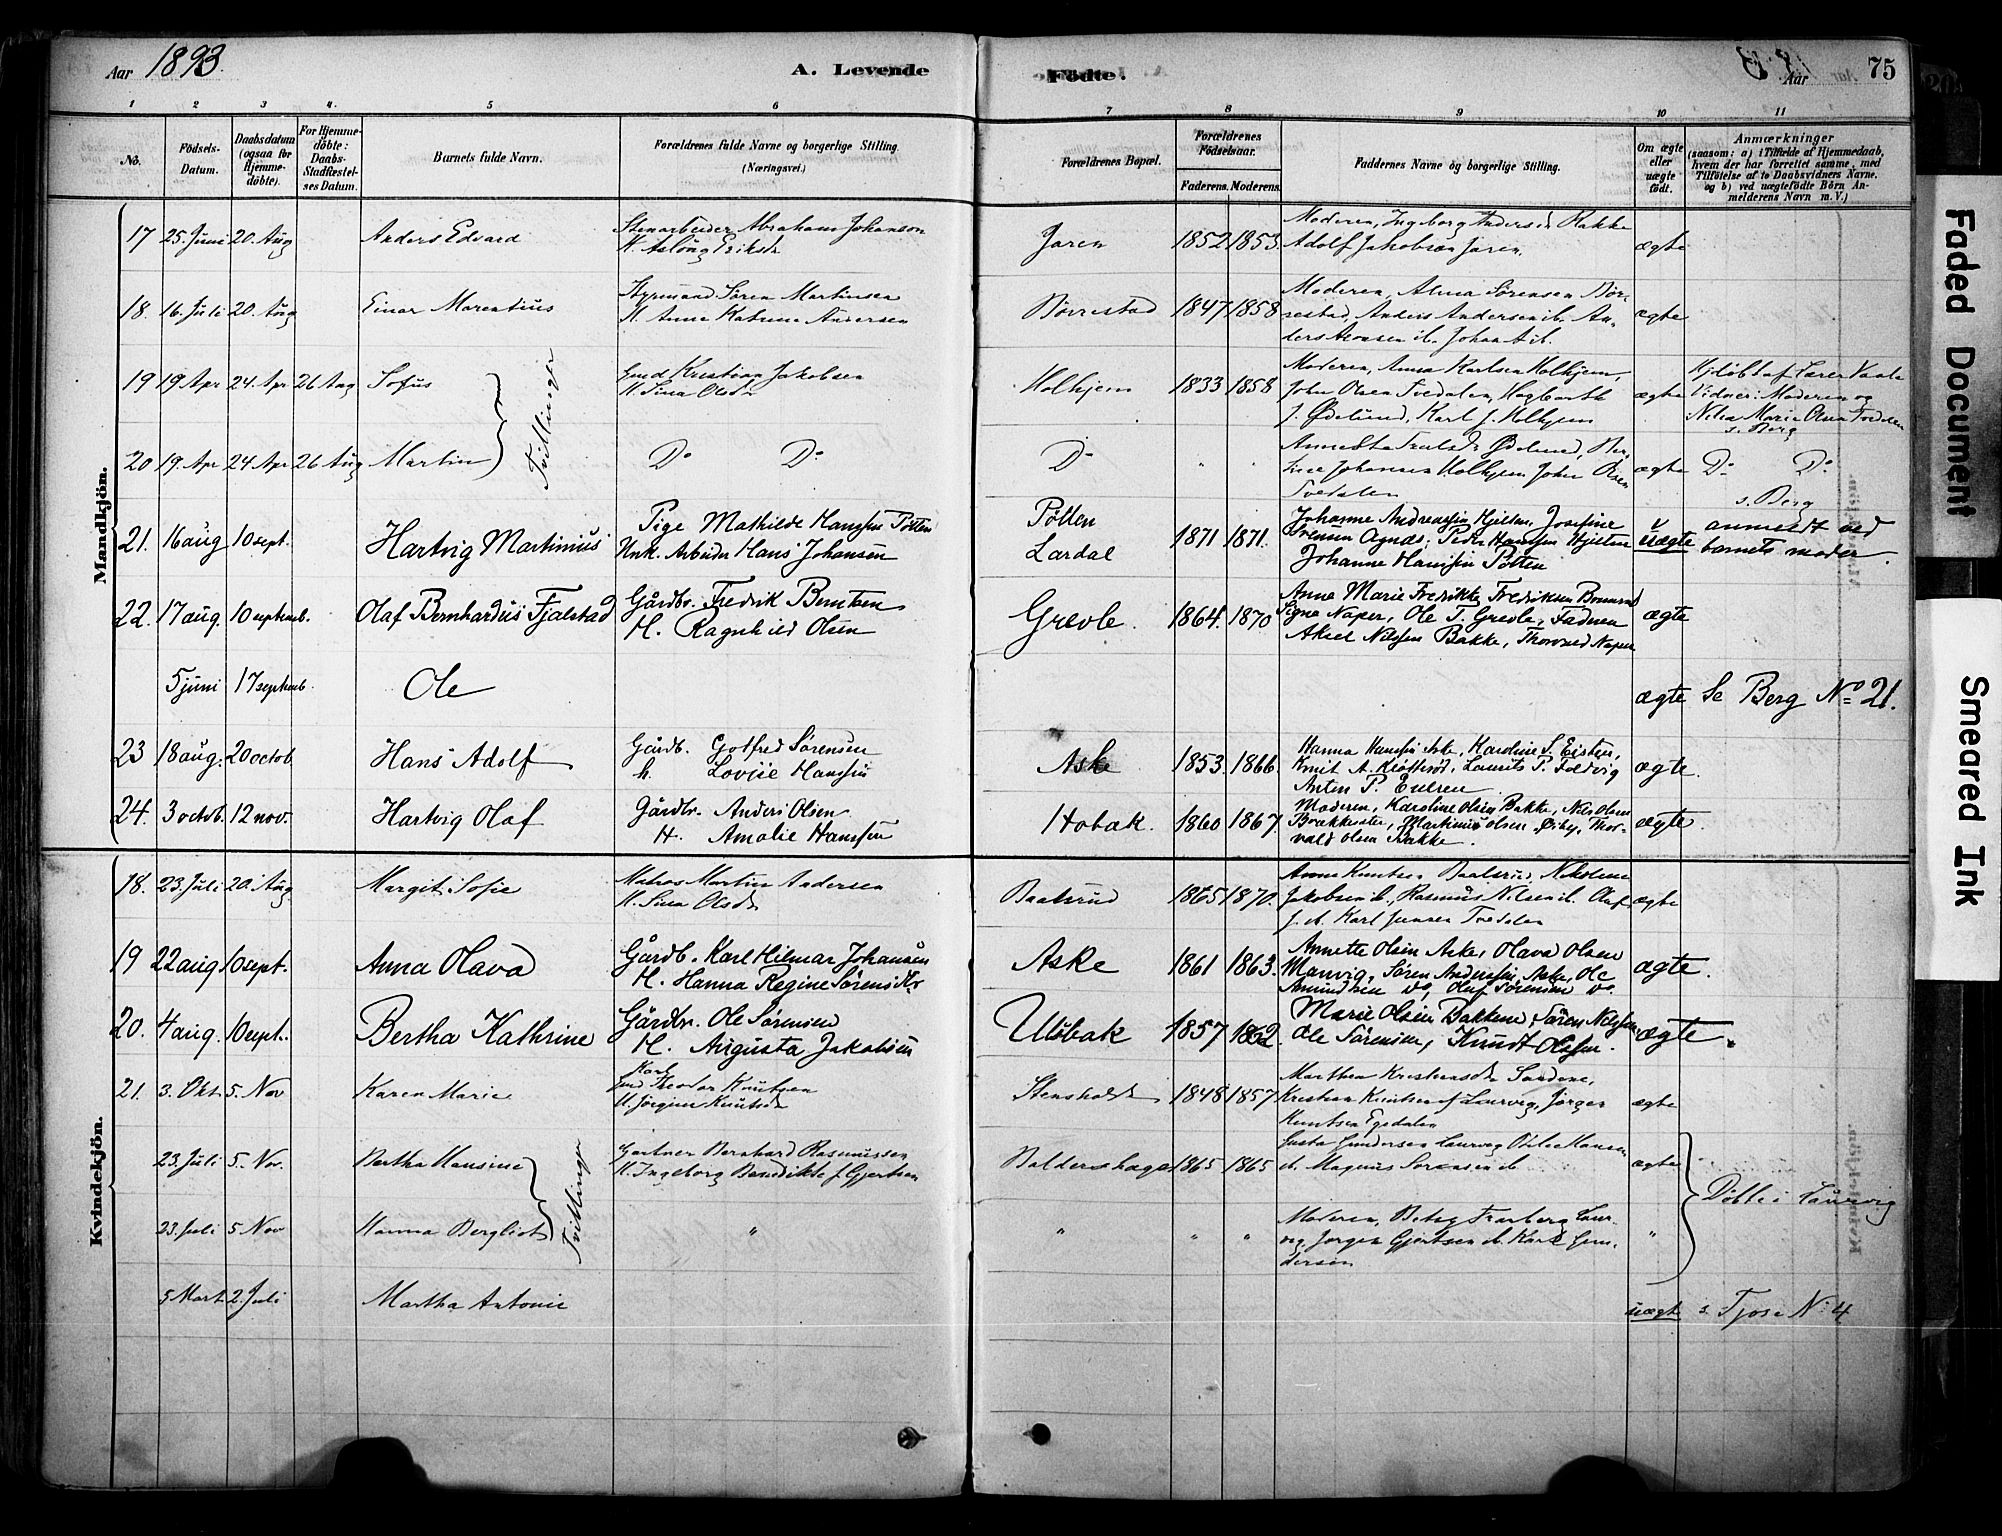 Aar 1893.
A. Levende Födte.
Aar 75
1 2 3 4. 5 6 7 8 9 10 11
No.
Födsels-Datum.
Daabsdatum (ogsaa för Hjemme-döbte).
For Hjemme-döbte: Daabs-Stadfæstel-ses Datum.
Barnets fulde Navn.
Forældrenes fulde Navne og borgerlige Stilling. (Næringsvei.)
Forældrenes Bopæl.
Forældrenes Födselsaar.
Faderens. Moderens.
Faddernes Navne og borgerlige Stilling.
Om ægte eller uægte födt.
Anmærkninger
(saasom: a) i Tilfælde af Hjemmedaab, hvem der har forrettet samme, med Tilföielse af to Daabsvidners Navne. og b) ved uægtefödte Börn Anmelderens Navn m. V.)
Mandkjön.
17 25. Juni 20. Aug Anders Edvard
Stenarbeider Abraham Johanson
H. Aslöug Eriksdr
Jaren 1852 1853.
Moderen, Ingeborg Andersdr Rakke
Adolf Jakobsen Jaren.
ægte
18. 16. Juli 20. Aug Einar Marentius
Styrmand Søren Martinsen
H. Anne Katrine Andersen
Børrestad 1847 1858
Moderen, Alma Sørensen Bør-
restad, Anders Andersen ib. An-
ders Aronsen ib. Johan A ib.
ægte
19 19 Apr 24. Apr 26 Aug Sofus
Tvillinger
Gmd Kristian Jakobsen
H. Sina Olsdr
Holhjem 1833 1858
Moderen, Anna Karlsen Holhjem,
John Olsen Tvedalen, Hagbarth
J. Ødelund, Karl J. Holhjem
ægte
Hjdöbt af Lærer Vaale
Vidner: Moderen og
Nilia Marie Olsen Tvedalen
s. Berg
20 19. Apr 24 Apr 26 Aug Martin
Do Do
Do " "
Ødelund, Ber-
Johansen Holhjem John Olsen
Tvedalen
ægte Do Do
s. Berg
21. 16 aug 10 sept. Hartvig Martinius
Pige Mathilde Hanssen Pøtten
Unk. Arbeider Hans Johansen
Pøtten
Lardal
1871 1871.
Johanne Andreassen Hjelten, Josefine
Svensen Agnæs, Peder Hanssen Hjelten
Johanne Hanssen Pøtten
uægte
anmeldt ved
barnets moder
22. 17 aug. 10 septemb. Olaf Bernhardus Fjalstad
Gårdbr. Fredrik Berntsen
H. Ragnhild Olsen
Grevle. 1864. 1870
Anne Marie Fredrikke Fredriksen
Signe Naper, Ole T. Grevle, Faderen
Aksel Nilssen Bakke, Thorvald Naper
ægte
5 juni 17 septemb. Ole
ægte Se Berg No 21.
23 18 aug. 20 octob. Hans Adolf
Gårdb. Gotfred Sørensen
h. Lovise Hanssen
Aske 1853. 1866.
Hanna Hanssen Aske, Karoline S. Eisten,
Knut A. Kløtterød, Laurits P. Foldvig
Anton P.
ægte.
24. 3 octob. 12 nov. Hartvig Olaf
Gårdbr. Anders Olsen
H. Amalie Hanssen
Hobak. 1860 1867
Moderen, Karoline Olsen Bakke, Nils Olsen
Martinius Olsen Ørby, Thor-
vald Olsen Bakke.
ægte.
Kvindekjön.
18. 23. Juli 20. Aug Margit Sofie
Matros Martin Andersen
H. Sina Olsdr
Baalsrud 1865 1870.
Anne Knutsen Baalsrud, Nikoline
Jakobsen ib., Rasmus Nilsen ib. Olaf
J. ib. Karl Jensen Tvedalen
ægte
19 22 aug 10 sept. Anna Olava
Gårdb. Karl Hilmar Johansen
H. Hanna Regine Sørensdr
Aske 1861 1863.
Annette Olsen Aske, Olava Olsen
Manvig, Søren Anderssen Aske, Ole
Amundsen do, Oluf Sørensen do.
ægte.
20. 4 aug. 10 sept. Bertha Kathrine
Gårdbr. Ole Sørensen
H. Augusta Jakobsen
Ulsbak 1857 1862.
Marie Olsen Bakkene, Søren Nilssen,
Ole Sørensen, Knudt Olssen.
ægte.
21. 3. Okt. 5. Nov Karen Marie
Karl
Gmd Theodor Knutsen
H. Jørgine Knutsdr
Stensholdt 1848 1857
Marthea Kristensdr Sandene,
Kristian Knutsen af Laurvig, Jørgen
Knutsen Egedalen
ægte
23. Juli 5. Nov. Bertha Hansine
Tvillinger
Gartner Bernhard Rasmussen
H. Ingeborg Benedikte f. Gjertsen
Baldershage 1865 1865
Gusta Gundersen Laurvig Hansen
ib. Magnus Sørensen ib
ægte
Døbte i Laurvig
23. Juli 5 Nov Hanna Bergliot
" " " "
Moderen, Betsy Laur-
vig, Jørgen Gjertsen ib. Karl Gun-
dersen
"
5 Mart. 2. Juli Martha Antonie
uægt s. Tjose No 4
Faded Document
Smeared Ink